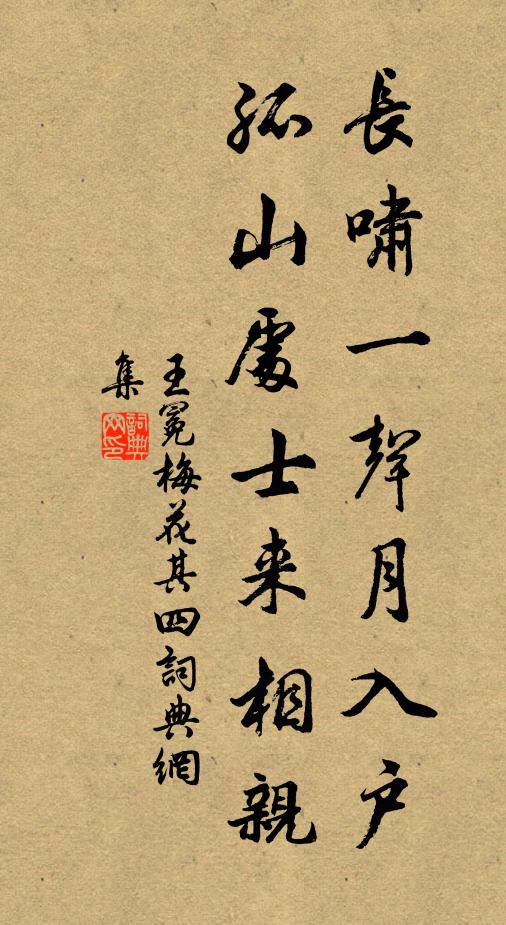 長嘯一聲月入戶
孤山處士来相親
王冕梅花其四詞典網
集
詞典網印